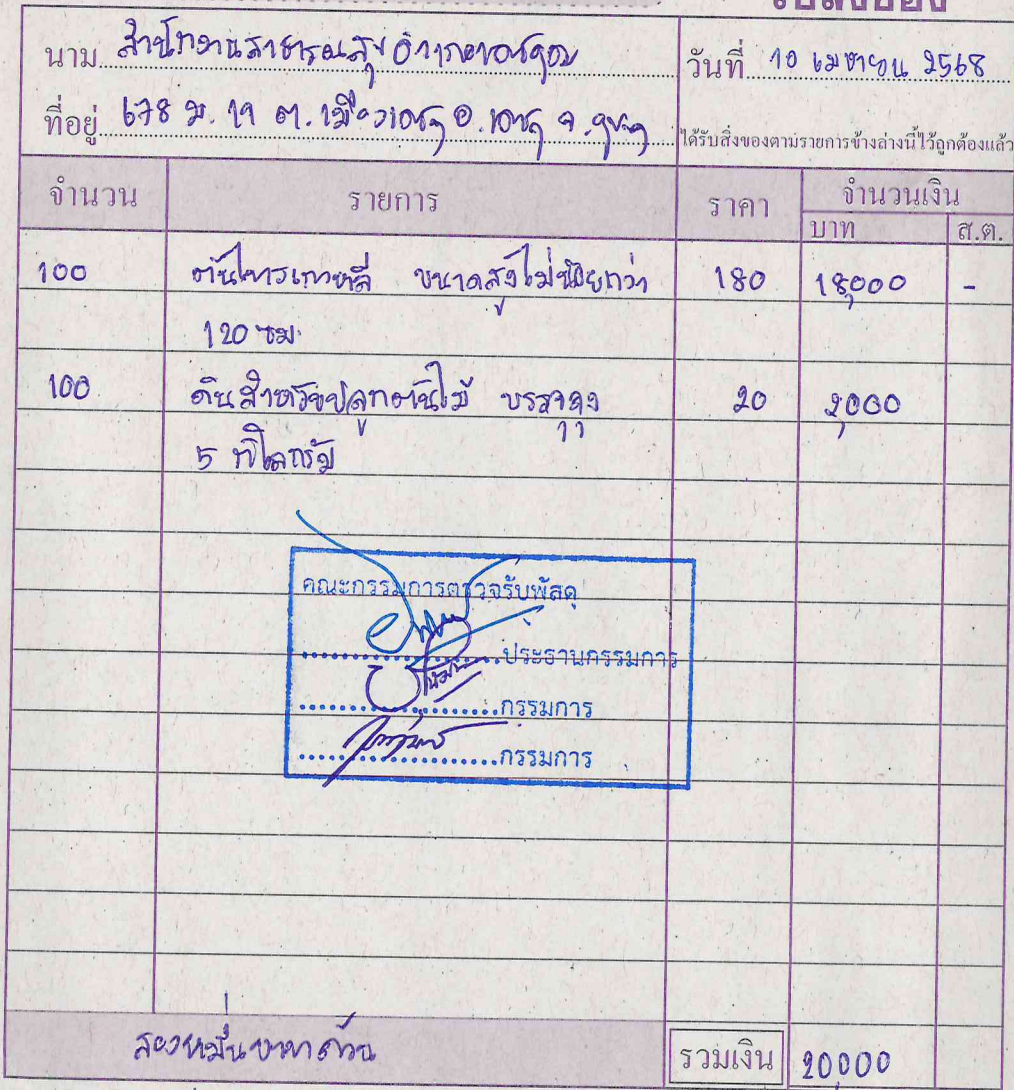 ใบส่งของ
นาม สำนักงานสาธารณสุขอำเภอเดชอุดม
วันที่ 10 เมษายน 2568
ที่อยู่ 678 ม. 11 ต. เมืองเดช อ. เดช จ. อุบลฯ
ได้รับสิ่งของตามรายการข้างล่างนี้ไว้ถูกต้องแล้ว
จำนวน รายการ ราคา จำนวนเงิน
บาท ส.ต.
100 ต้นไทรเกาหลี ขนาดสูงไม่น้อยกว่า 180 18,000 -
120 ซม.
100 ดินสำหรับปลูกต้นไม้ บรรจุถุง 20 2,000
5 กิโลกรัม
คณะกรรมการตรวจรับพัสดุ
ประธานกรรมการ
กรรมการ
กรรมการ
สองหมื่นบาทถ้วน รวมเงิน 20,000